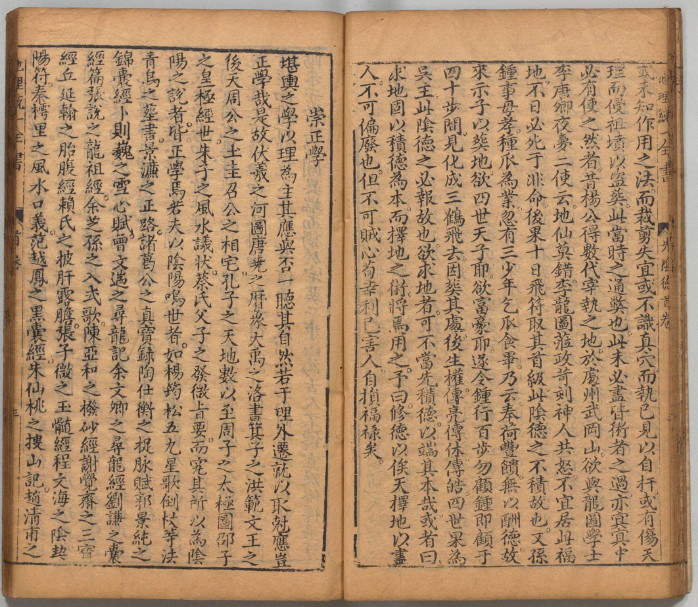 或未知作用之法而裁剪失宜或不識真穴而執已見以自扞或有傷天
理而侵祖墳以盜𦵏此當時之通獘也此未必盡皆術者之過亦冥冥中
必有使之然者昔楊公得數代宰執之地於處州武岡山欲與龍圖學士
李唐卿夜夢二使云地仙莫錯李龍圖蒞政苛刻神人共怒不宜居此福
地不日必死于非命後果十日飛符取其首級此陰德之不積故也又孫
鍾事母孝種瓜為業忽有三少年乞瓜食畢乃云奉荷豐饋無以酬德故
來示子以𦵏地欲四世天子乎欲富豪即遂令鍾行百步勿顧鍾即顧于
四十步間見化成三鶴飛去因𦵏其處後生權傳亮傳休傳皓四世果為
吳王此陰德之必報故也欲求地者可不當先積德以端其本哉或者曰
求地固以積德為本而擇地之術將焉用之予曰修德以俟天擇地以盡
人不可偏廢也但不可賊心苟幸利已害人自損福祿矣
崇正學
堪輿之學以理為主其應與否一聽其自然若于理外遷就以取應豈
正學哉是故伏羲之河圖唐堯之曆象大禹之洛書箕子之洪範文王之
後天周公之土圭召公之相宅孔子之天地數以至周子之太極圖邵子
之皇極經世朱子之風水議狀蔡氏父子之發微旨要而究其所以為陰
陽之說者皆正學焉若夫以陰陽鳴世者如楊筠松五九星歌倒杖等法
青烏之𦵏書景濂之正路諸葛公之真寶錄陶仕衡之捉脉賦郭景純之
錦囊經卜則巍之雪心賦曾文遄之尋龍記余文卿之尋龍經劉謙之囊
經篇張說之龍祖經余芝孫之入式歌陳亞和之撥砂經謝覺齋之三寶
經丘延翰之胎腹經賴氏之披肝露膽張子微之玉髓經程文海之陰契
陽符秦樗里之風水口義范越鳳之黑囊經朱仙桃之搜山記趙清甫之
地理統一全書
首卷